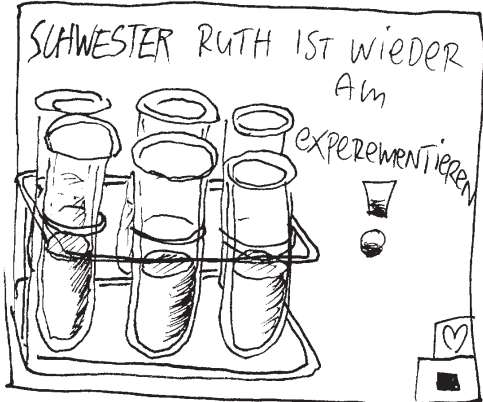 SCHWESTER RUTH IST WIEDER
AM
EXPEREMENTIEREN
!